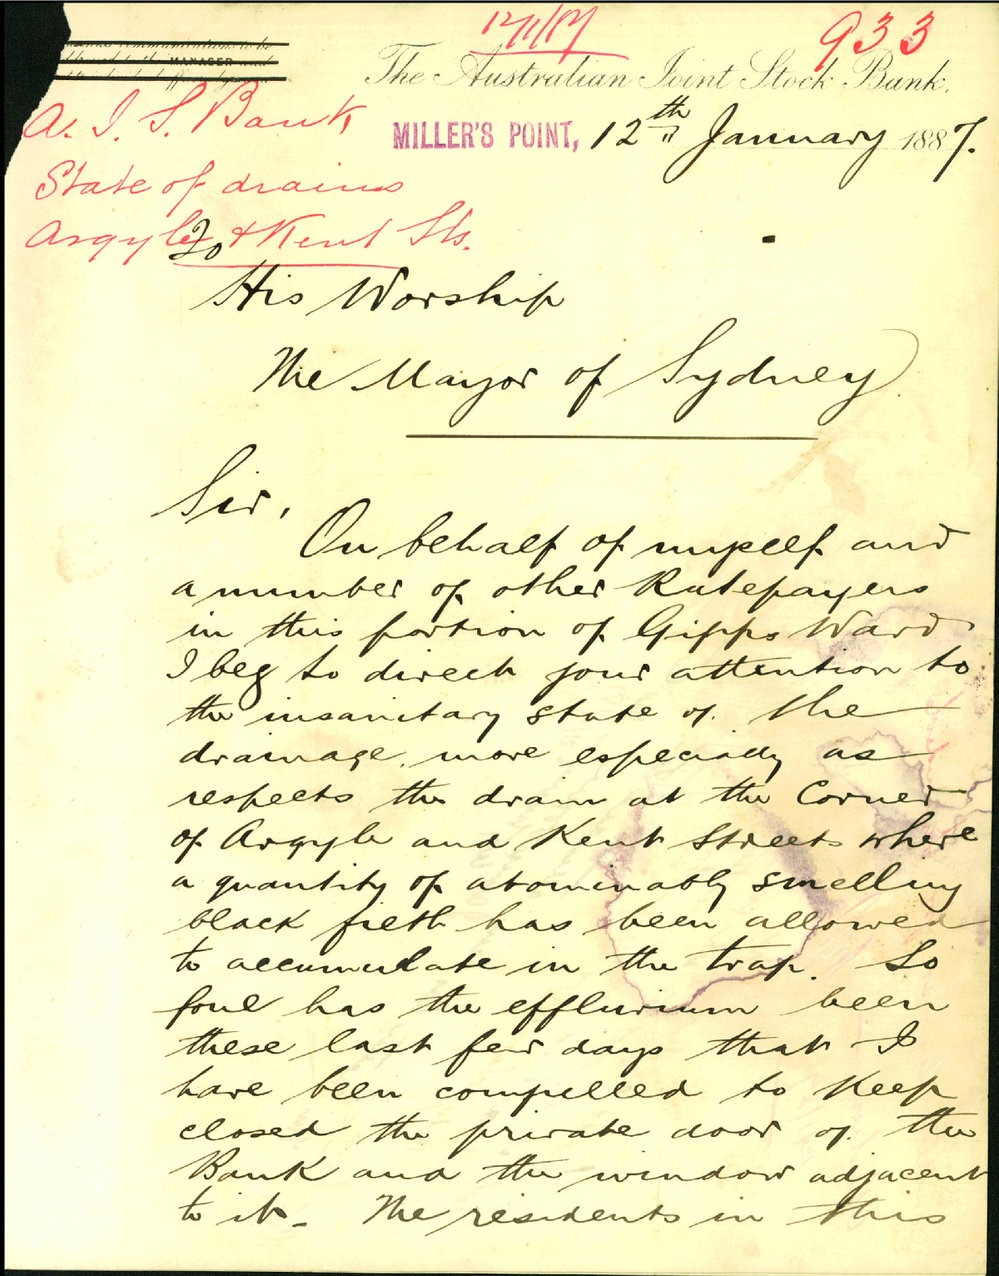 12/1/87
933
MANAGER
The Australian Joint Stock Bank,
A. J. S. Bank
MILLER'S POINT, 12th January 1887.
State of drains
Argyle & Kent Sts.
To
His Worship
The Mayor of Sydney
Sir,
On behalf of myself and
a number of other Ratepayers
in this portion of Gipps Ward
I beg to direct your attention to
the insanitary state of the
drainage, more especially as
respects the drain at the Corner
of Argyle and Kent Streets where
a quantity of abominably smelling
black filth has been allowed
to accumulate in the trap. So
foul has the effluvium been
these last few days that I
have been compelled to keep
closed the private door of the
Bank and the window adjacent
to it. The residents in this